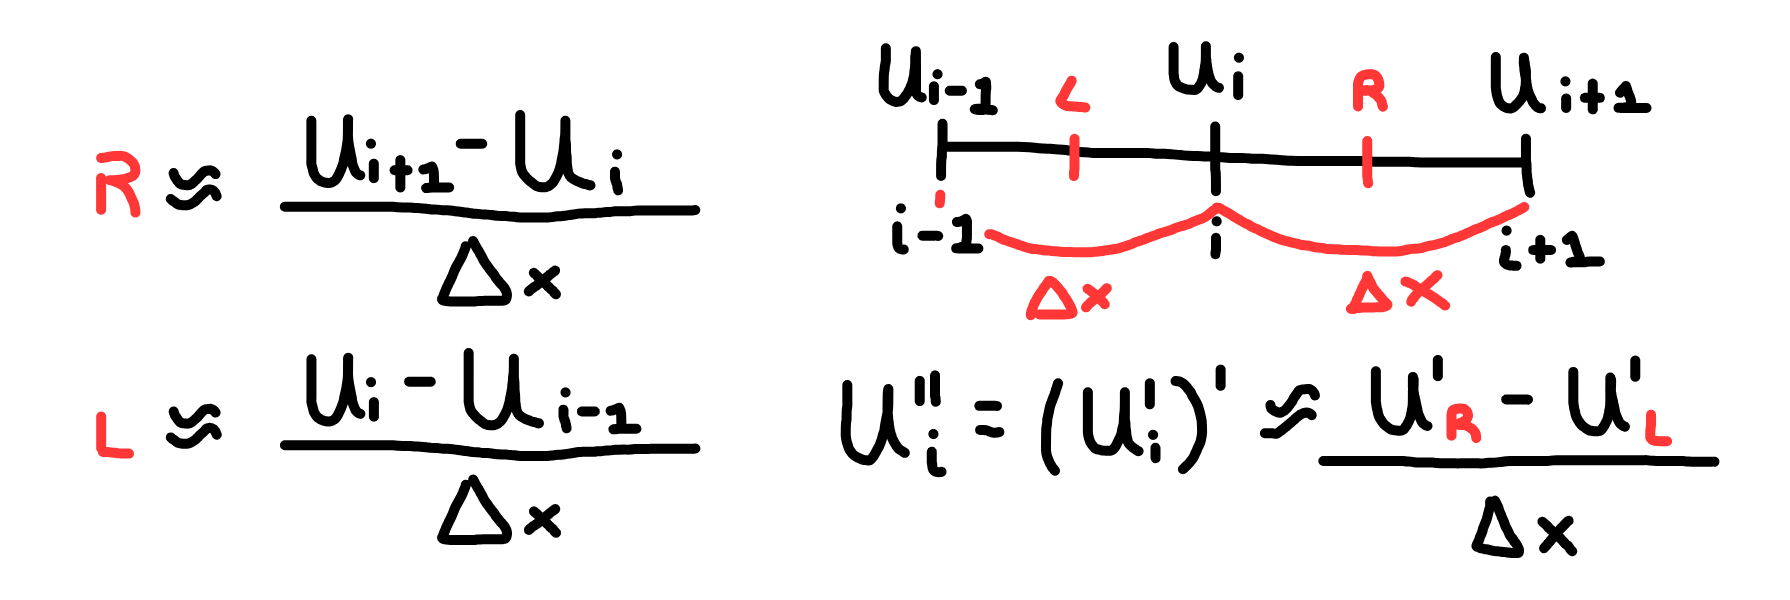 R ≈ (u_{i+1} - u_i) / Δx
L ≈ (u_i - u_{i-1}) / Δx
u_{i-1} L u_i R u_{i+1}
i-1 i i+1
Δx Δx
u''_i = (u'_i)' ≈ (u'_R - u'_L) / Δx